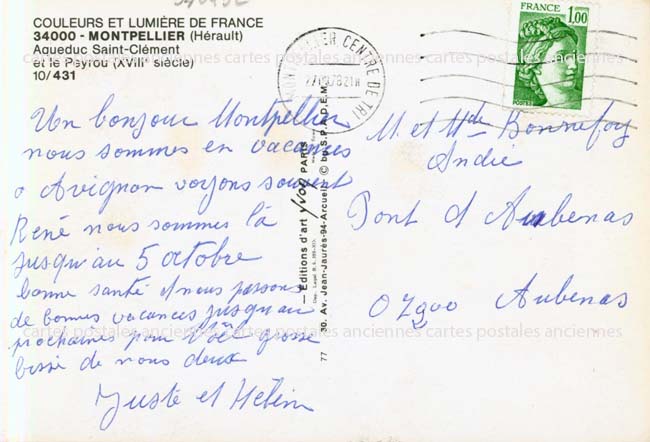 COULEURS ET LUMIÈRE DE FRANCE
34000 - MONTPELLIER (Hérault)
Aqueduc Saint-Clément
et le Peyrou (XVIIIe siècle)
10/431
Un bonjour Montpellier
nous sommes en vacances
a Avignon voyons souvent
René nous sommes là
jusqu'au 5 octobre
bonne santé nous passons
de bonnes vacances jusqu'au
prochaines pour grosse
bisse de nous deux
Juste et Hélèn
— Editions d'art Yvon PARIS
30, Av. Jean-Jaurès-94-Arcueil © by S.P.A.D.E.M.
77
MONTPELLIER CENTRE DE TRI
1978 21H
1,00
POSTES
M. et Mde Bonnefoy
André
Pont d Aubenas
07200 Aubenas
cartes postales anciennes cartes postales anciennes cartes postales anciennes
cartes postales anciennes cartes postales anciennes cartes postales anciennes
cartes postales anciennes cartes postales anciennes cartes postales anciennes